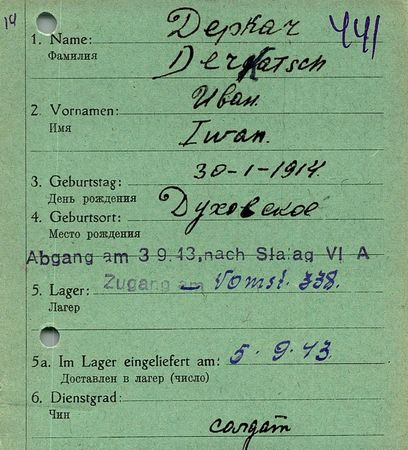 14
Деркач
441
1. Name:
Фамилия
Derkatsch
Иван.
2. Vornamen:
Имя
Iwan.
30-1-1914.
3. Geburtstag:
День рождения
Духовское
4. Geburtsort:
Место рождения
Abgang am 3 9.43, nach Stalag VI A
Zugang am – vom St. 338.
5. Lager:
Лагер
5a. Im Lager eingeliefert am: 5.9.43.
Доставлен в лагер (число)
6. Dienstgrad:
Чин
солдат